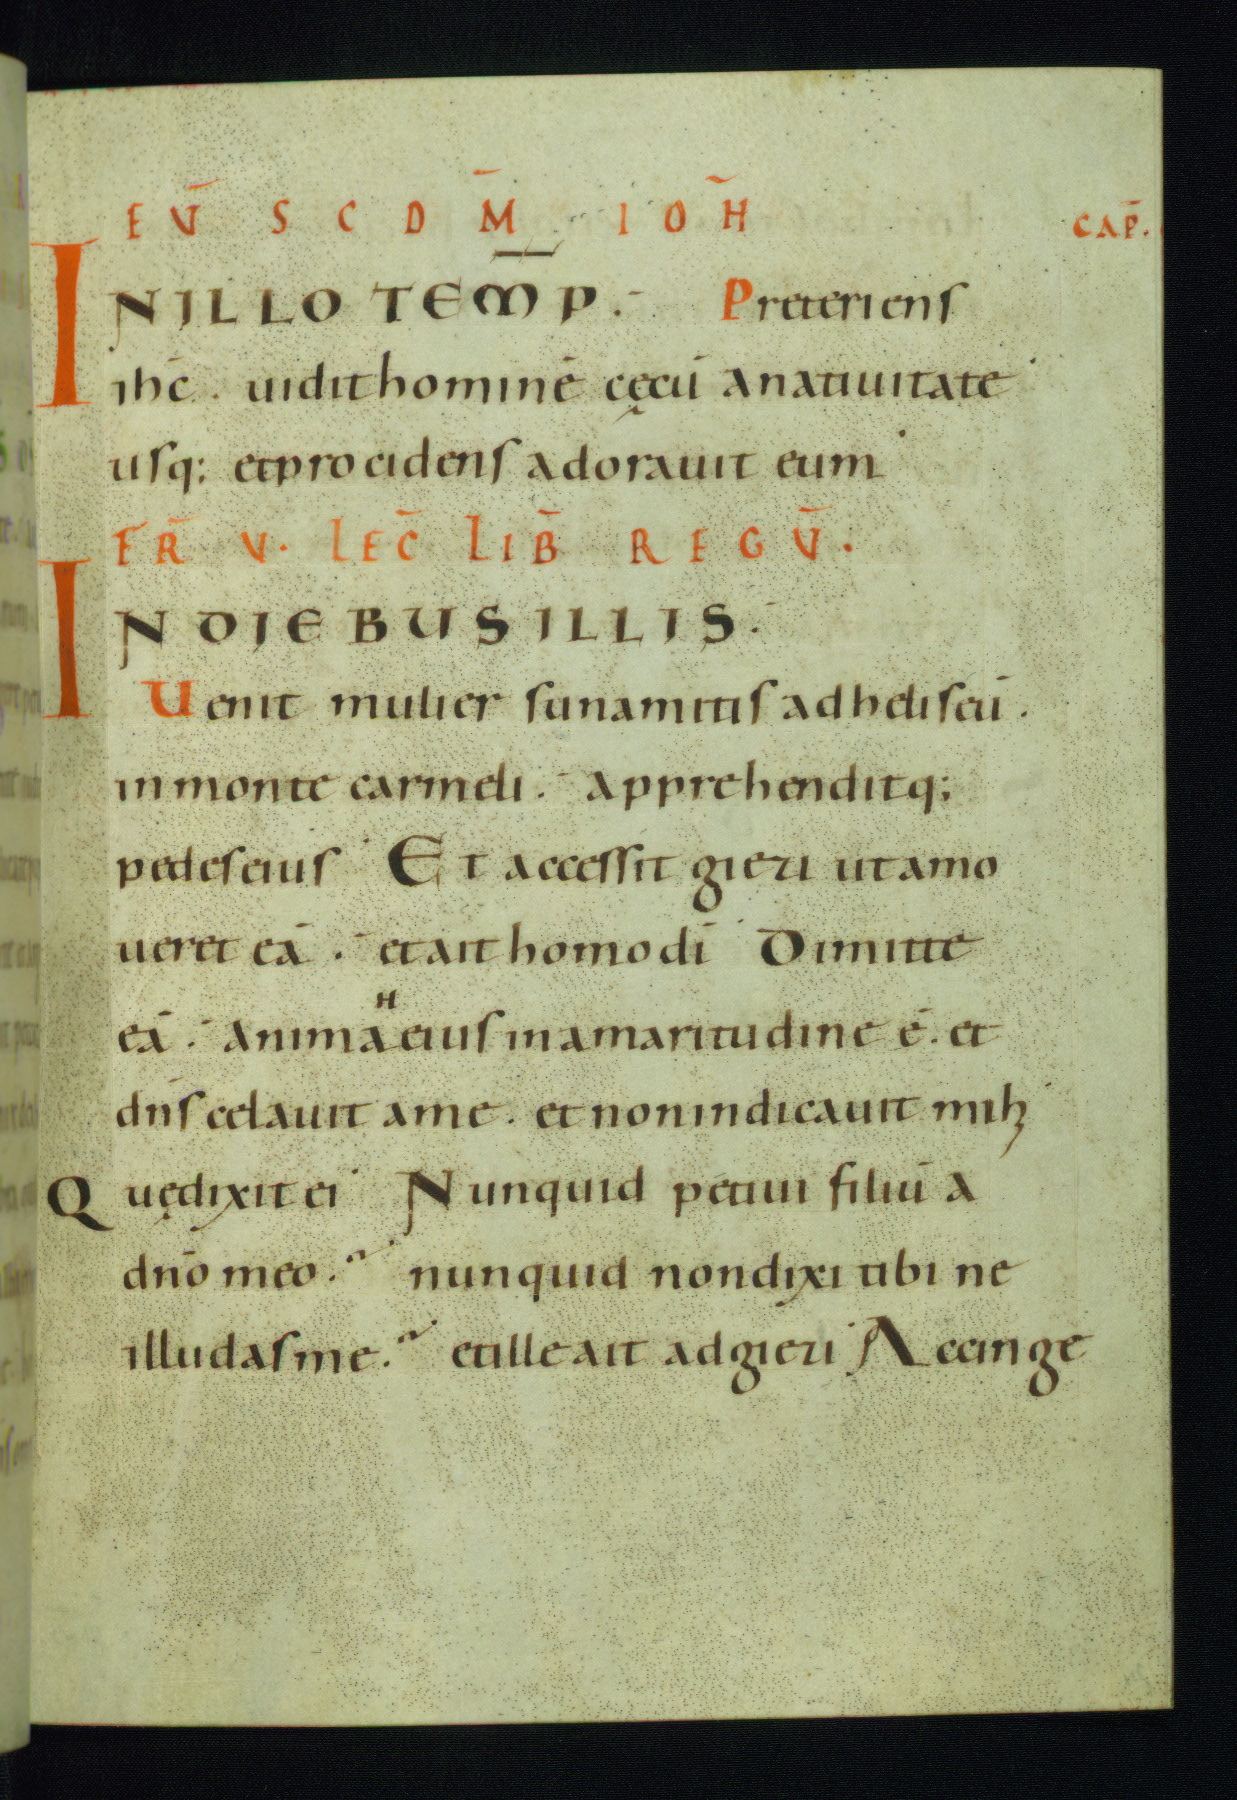 EV̄ S C D M̄ IOH̄ CAP̄.
INILLO TEM̄P. Preteriens
ihc̄. uidit hominē cęcū a natiuitate
usq; et procidens adorauit eum
FR̄ V. LEC̄ LIB̄ REGV̄.
IN DIEBUS ILLIS.
Uenit mulier sunamitis ad heliseū.
in monte carmeli. apprehenditq;
pedes eius Et accessit giezi ut amo
ueret eā. et ait homo dī Dimitte
eā. anima H eius in amaritudine ē. et
dn̄s celauit a me. et non indicauit mihꝫ
Quę dixit ei Nunquid petiui filiū a
dn̄o meo. nunquid non dixi tibi ne
illudas me. et ille ait ad giezi Accinge